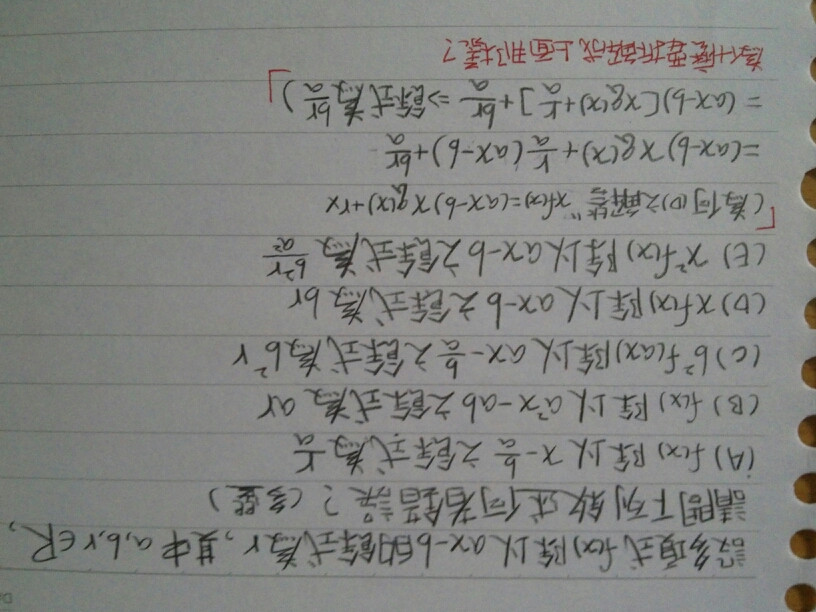 設多項式 f(x) 除以 ax-b 的餘式為 r, 其中 a,b,r∈R,
請問下列敘述何者錯誤? (多選)
(A) f(x) 除以 x-b/a 之餘式為 r/a
(B) f(x) 除以 a²x-ab 之餘式為 ar
(C) b²f(ax) 除以 ax-b/a 之餘式為 b²r
(D) xf(x) 除以 ax-b 之餘式為 br
(E) x²f(x) 除以 ax-b 之餘式為 b²r/a²
「(為何(D)之解答"xf(x)=(ax-b)xg(x)+rx
=(ax-b)xg(x)+r/a(ax-b)+br/a
=(ax-b)[xg(x)+r/a]+br/a ⇒餘式為br/a)」
為什麼要拆解成上面那樣?